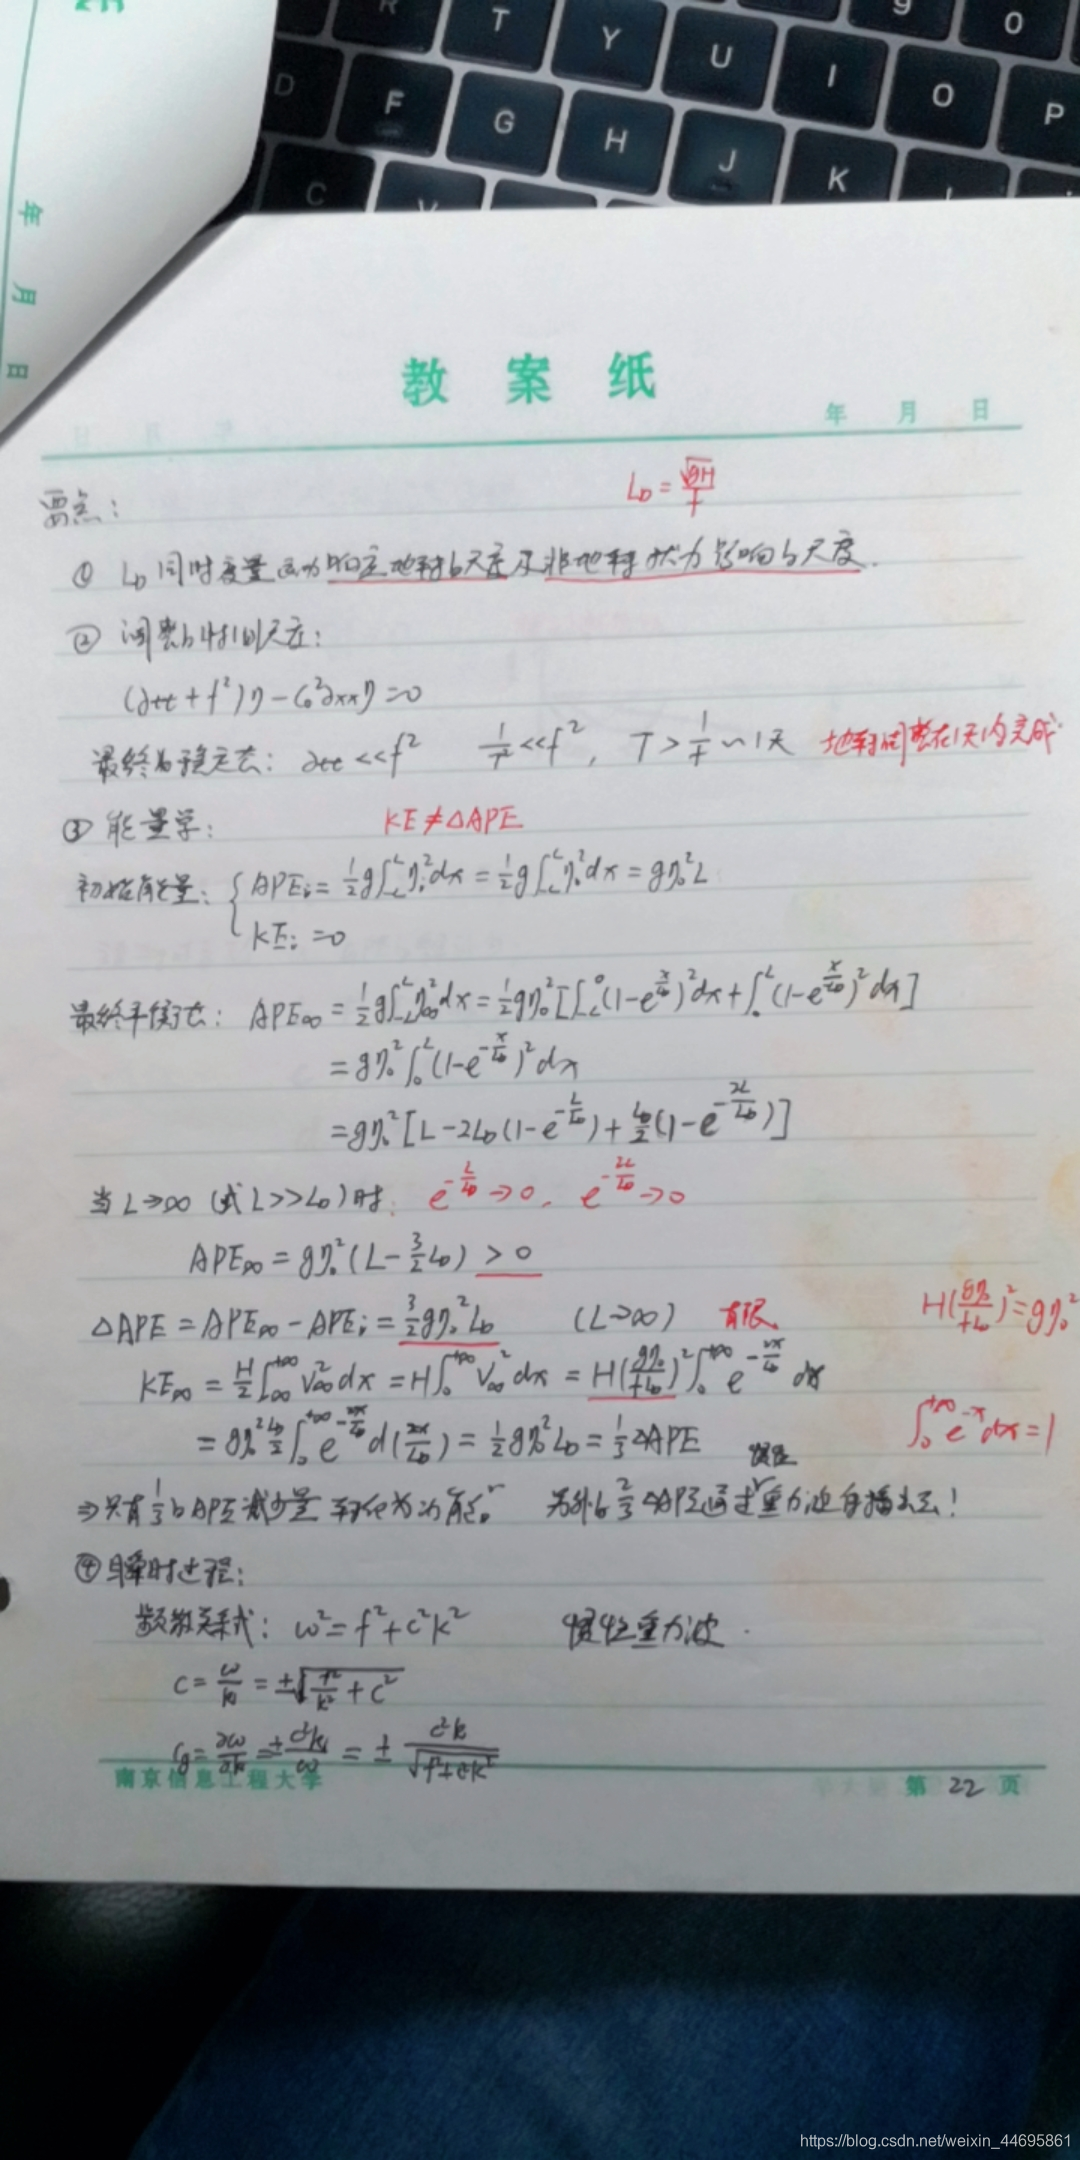 R T Y U I 9 O 0 P
D F G H J K L
C V
年 月 日
教 案 纸
年 月 日
要点:
L_D = √(gH)/f
① L_D 同时度量运动响应地转的尺度及非地转状力影响的尺度.
② 调整的时间尺度:
(∂tt + f²)η - C₀²∂xxη = 0
最终为稳定态: ∂tt << f² 1/T² << f², T > 1/f ~ 1天 地转调整在1天内完成.
③ 能量学: KE ≠ ΔAPE
初始能量: { APEᵢ = 1/2 g∫₋L^L ηᵢ² dx = 1/2 g∫₋L^L η₀² dx = gη₀²L
KEᵢ = 0
最终平衡态: APE∞ = 1/2 g∫₋L^L η∞² dx = 1/2 gη₀² [∫₋L^0 (1-e^(x/L_D))² dx + ∫₀^L (1-e^(x/L_D))² dx]
= gη₀² ∫₀^L (1-e^(-x/L_D))² dx
= gη₀² [L - 2L_D(1-e^(-L/L_D)) + L_D/2 (1-e^(-2L/L_D))]
当 L→∞ (或 L>>L_D) 时: e^(-L/L_D) → 0. e^(-2L/L_D) → 0
APE∞ = gη₀² (L - 3/2 L_D) > 0
ΔAPE = APE∞ - APEᵢ = 3/2 gη₀² L_D (L→∞) 有限 H(gη₀/fL_D)² = gη₀²
KE∞ = H/2 ∫₋∞^+∞ V∞² dx = H∫₀^+∞ V∞² dx = H(gη₀/fL_D)² ∫₀^+∞ e^(-2x/L_D) dx
= gη₀² L_D/2 ∫₀^+∞ e^(-2x/L_D) d(2x/L_D) = 1/2 gη₀² L_D = 1/3 ΔAPE ∫₀^+∞ e^(-x) dx = 1
惯性
⇒只有1/3的APE减少量转化为动能。 另外的2/3 ΔAPE通过重力波传播出去!
④ 瞬时过程:
频散关系式: ω² = f² + c²k² 惯性重力波.
C = ω/k = ±√(f²/k² + c²)
Cg = ∂ω/∂k = ± c²k/ω = ± c²k/√(f²+c²k²)
南京信息工程大学 第 22 页
https://blog.csdn.net/weixin_44695861